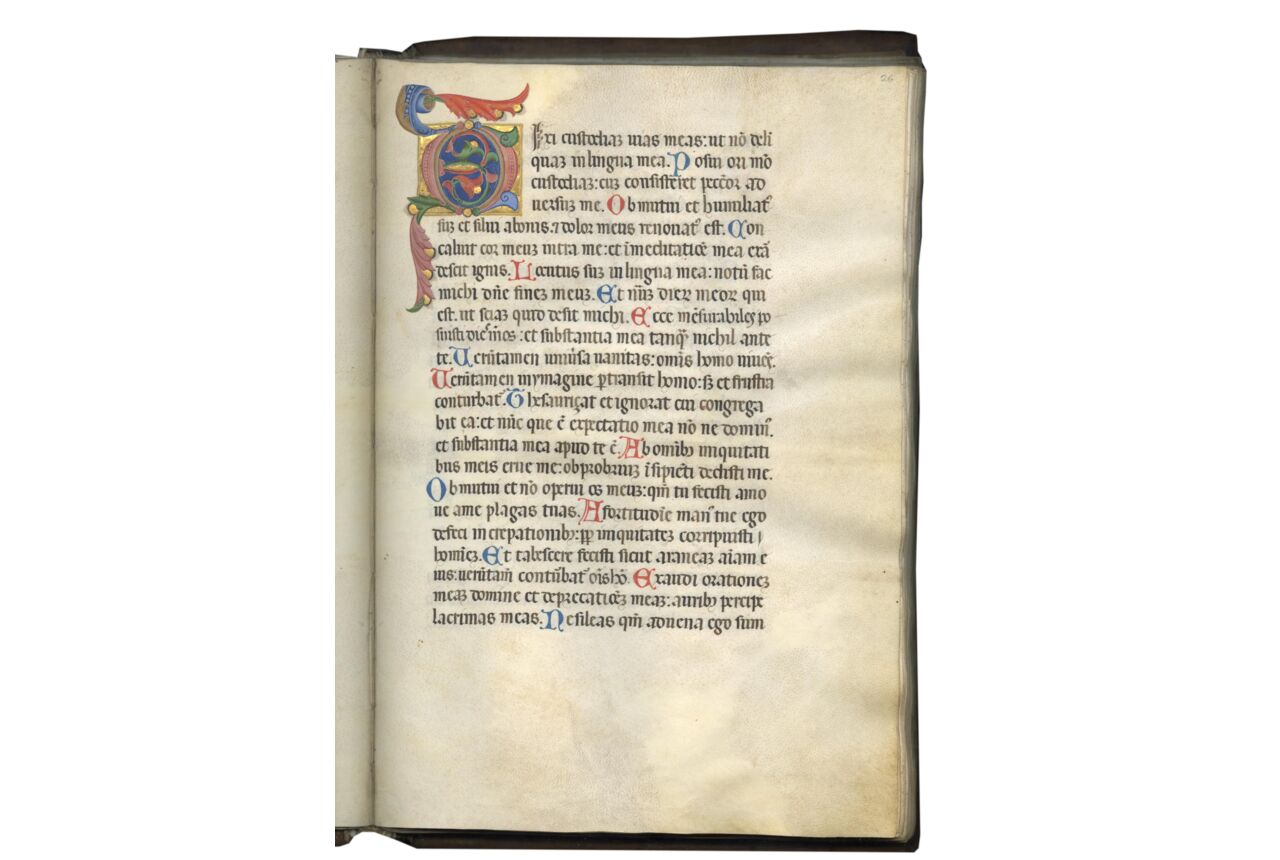 26
Dixi custodiaz uias meas: ut nō deli
quaz in lingua mea. Posui ori mō
custodiaz: cuz consisteret peccōr ad
uersuz me. Obmutui et humiliat᷑
suz et silui abonis. ⁊ dolor meus renouat᷑ est. Con
caluit cor meuz intra me: et ī meditatiōē mea exā
descit ignis. Locutus suz in lingua mea: notū fac
michi dn̄e finez meuz. Et nūz dier meor qui
est. ut sciaz quid desit michi. Ecce mēsurabiles po
suisti dies mōs: et substantia mea tanq̄ nichil ante
te. Uerūtamen uniūsa uanitas: omīs homo uiuēs.
Uerūtamen inymagine ptransit homo: sz et frustra
conturbat᷑. Thesaurizat et ignorat cui congrega
bit ea: et nūc que ē expectatio mea nō ne domiu᷑.
et substantia mea apud te ē. Ab omībz iniquitati
bus meis erue me: obprobriuz īsipiēti dedisti me.
Obmutui et nō operui os meuz: qm̄ tu fecisti amo
ue ame plagas tuas. A fortitudīe man᷑ tue ego
defeci in crepationibz: pp̄ iniquitatez corripuisti
homīez. Et tabescere fecisti sicut araneaz aīam e
ius: uerūtam̄ contūbat᷑ oīs hō. Exaudi orationez
meaz domine et deprecatiōēz meaz: auribz percipe
lacrimas meas. Ne sileas qm̄ aduena ego sum